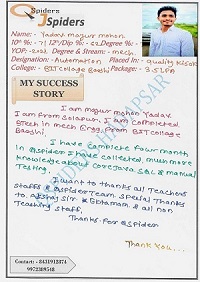 QSpiders
JSpiders
Name:- Yadav mayur mohan
10th %:- 71 12th/Dip %:- 62 Degree %:-
YOP:- 2021 Degree & Stream:- mech.
Designation:- Automation Placed In:- quality kiosk
College:- BIT college Barshi Package:- 3.5 LPA
MY SUCCESS
STORY
I am mayur mohan Yadav
I am from Solapur. I am completed
Btech in mech Engg. from BIT college
Barshi.
I have complete four month
in Qspider I have collected much more
knowledge about core java SQL & manual
Testing.
I want to thanks all Teachers
Staffs Qspider Team. special Thanks
to. Akshay Sir & all non
Teaching staff.
Thanks for Qspider
Thank you...
Contact: - 8431912874
9972389548